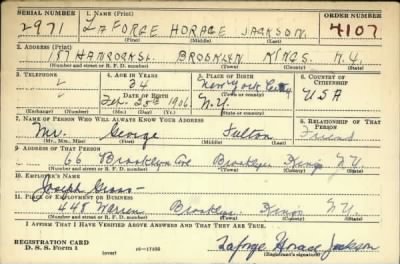 SERIAL NUMBER 1. NAME (Print) ORDER NUMBER
2971 LAFORGE HORACE JACKSON 4107
(First) (Middle) (Last)
2. ADDRESS (Print)
187 HANCOCK ST. BROOKLYN KINGS N.Y.
(Number and street or R. F. D. number) (Town) (County) (State)
3. TELEPHONE 4. AGE IN YEARS 5. PLACE OF BIRTH 6. COUNTRY OF CITIZENSHIP
34 New York City
DATE OF BIRTH (Town or county)
Feb. 25th 1906 N.Y. USA
(Exchange) (Number) (Mo.) (Day) (Yr.) (State or country)
7. NAME OF PERSON WHO WILL ALWAYS KNOW YOUR ADDRESS 8. RELATIONSHIP OF THAT PERSON
Mr. George Fulton Friend
(Mr., Mrs., Miss) (First) (Middle) (Last)
9. ADDRESS OF THAT PERSON
66 Brooklyn Ave Brooklyn Kings N.Y.
(Number and street or R. F. D. number) (Town) (County) (State)
10. EMPLOYER'S NAME
Joseph Gross
11. PLACE OF EMPLOYMENT OR BUSINESS
448 Warren Brooklyn Kings N.Y.
(Number and street or R. F. D. number) (Town) (County) (State)
I AFFIRM THAT I HAVE VERIFIED ABOVE ANSWERS AND THAT THEY ARE TRUE.
REGISTRATION CARD
D. S. S. Form 1 (over) Laforge Horace Jackson
(Registrant's signature)